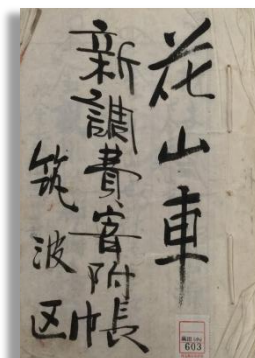 花山車
新調費寄附帳
筑波区
603